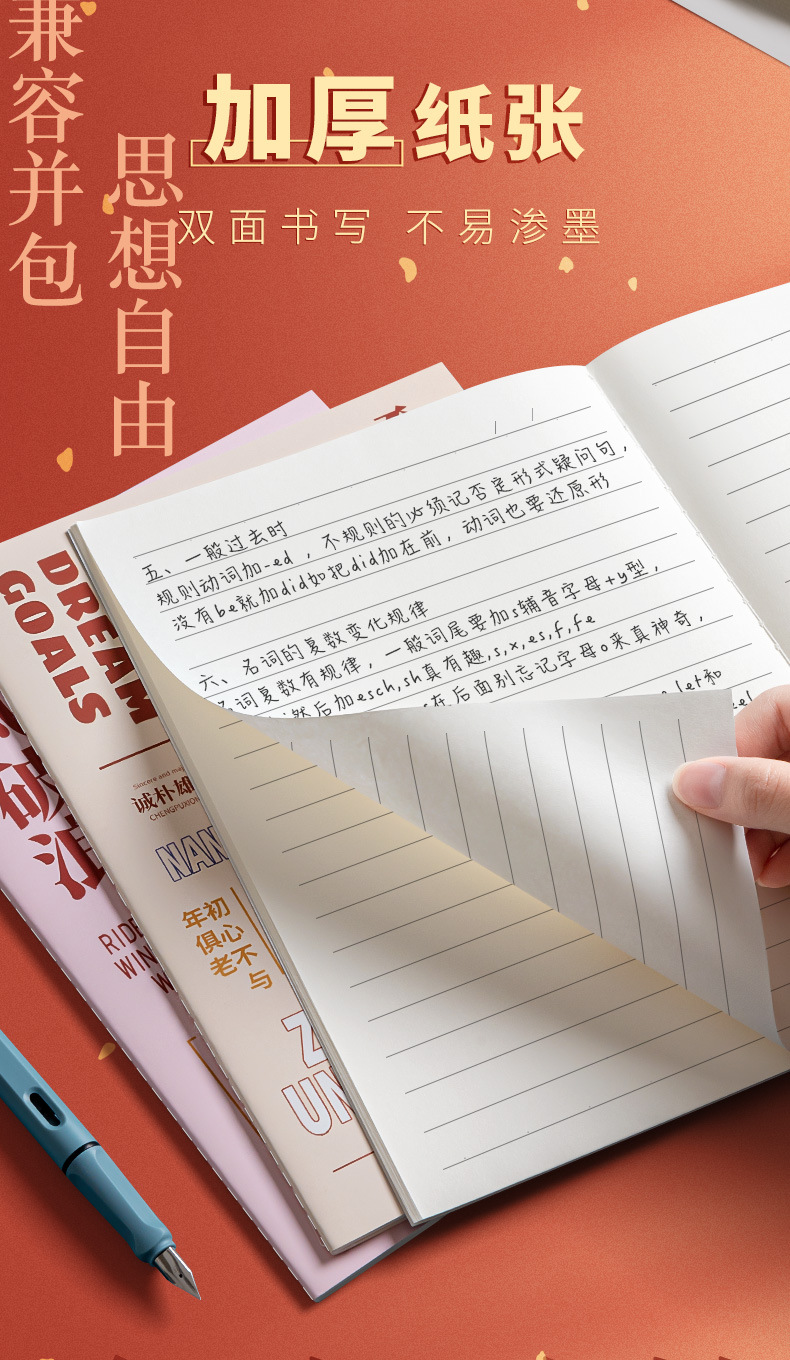 兼容并包
思想自由
加厚纸张
双面书写 不易渗墨
五、一般过去时
规则动词加-ed，不规则的必须记否定形式疑问句，
没有be就加did如把did加在前，动词也要还原形
六、名词的复数变化规律
名词复数有规律，一般词尾要加s辅音字母+y型，
然后加esch,sh真有趣,s,x,es,f,fe
在后面别忘记字母o来真神奇，
let和
DREAM
GOALS
Sincere and
诚朴雄
CHENGPUXION
NAN
年初
俱心
老不
与
UN
破
RIDE
WIN
W